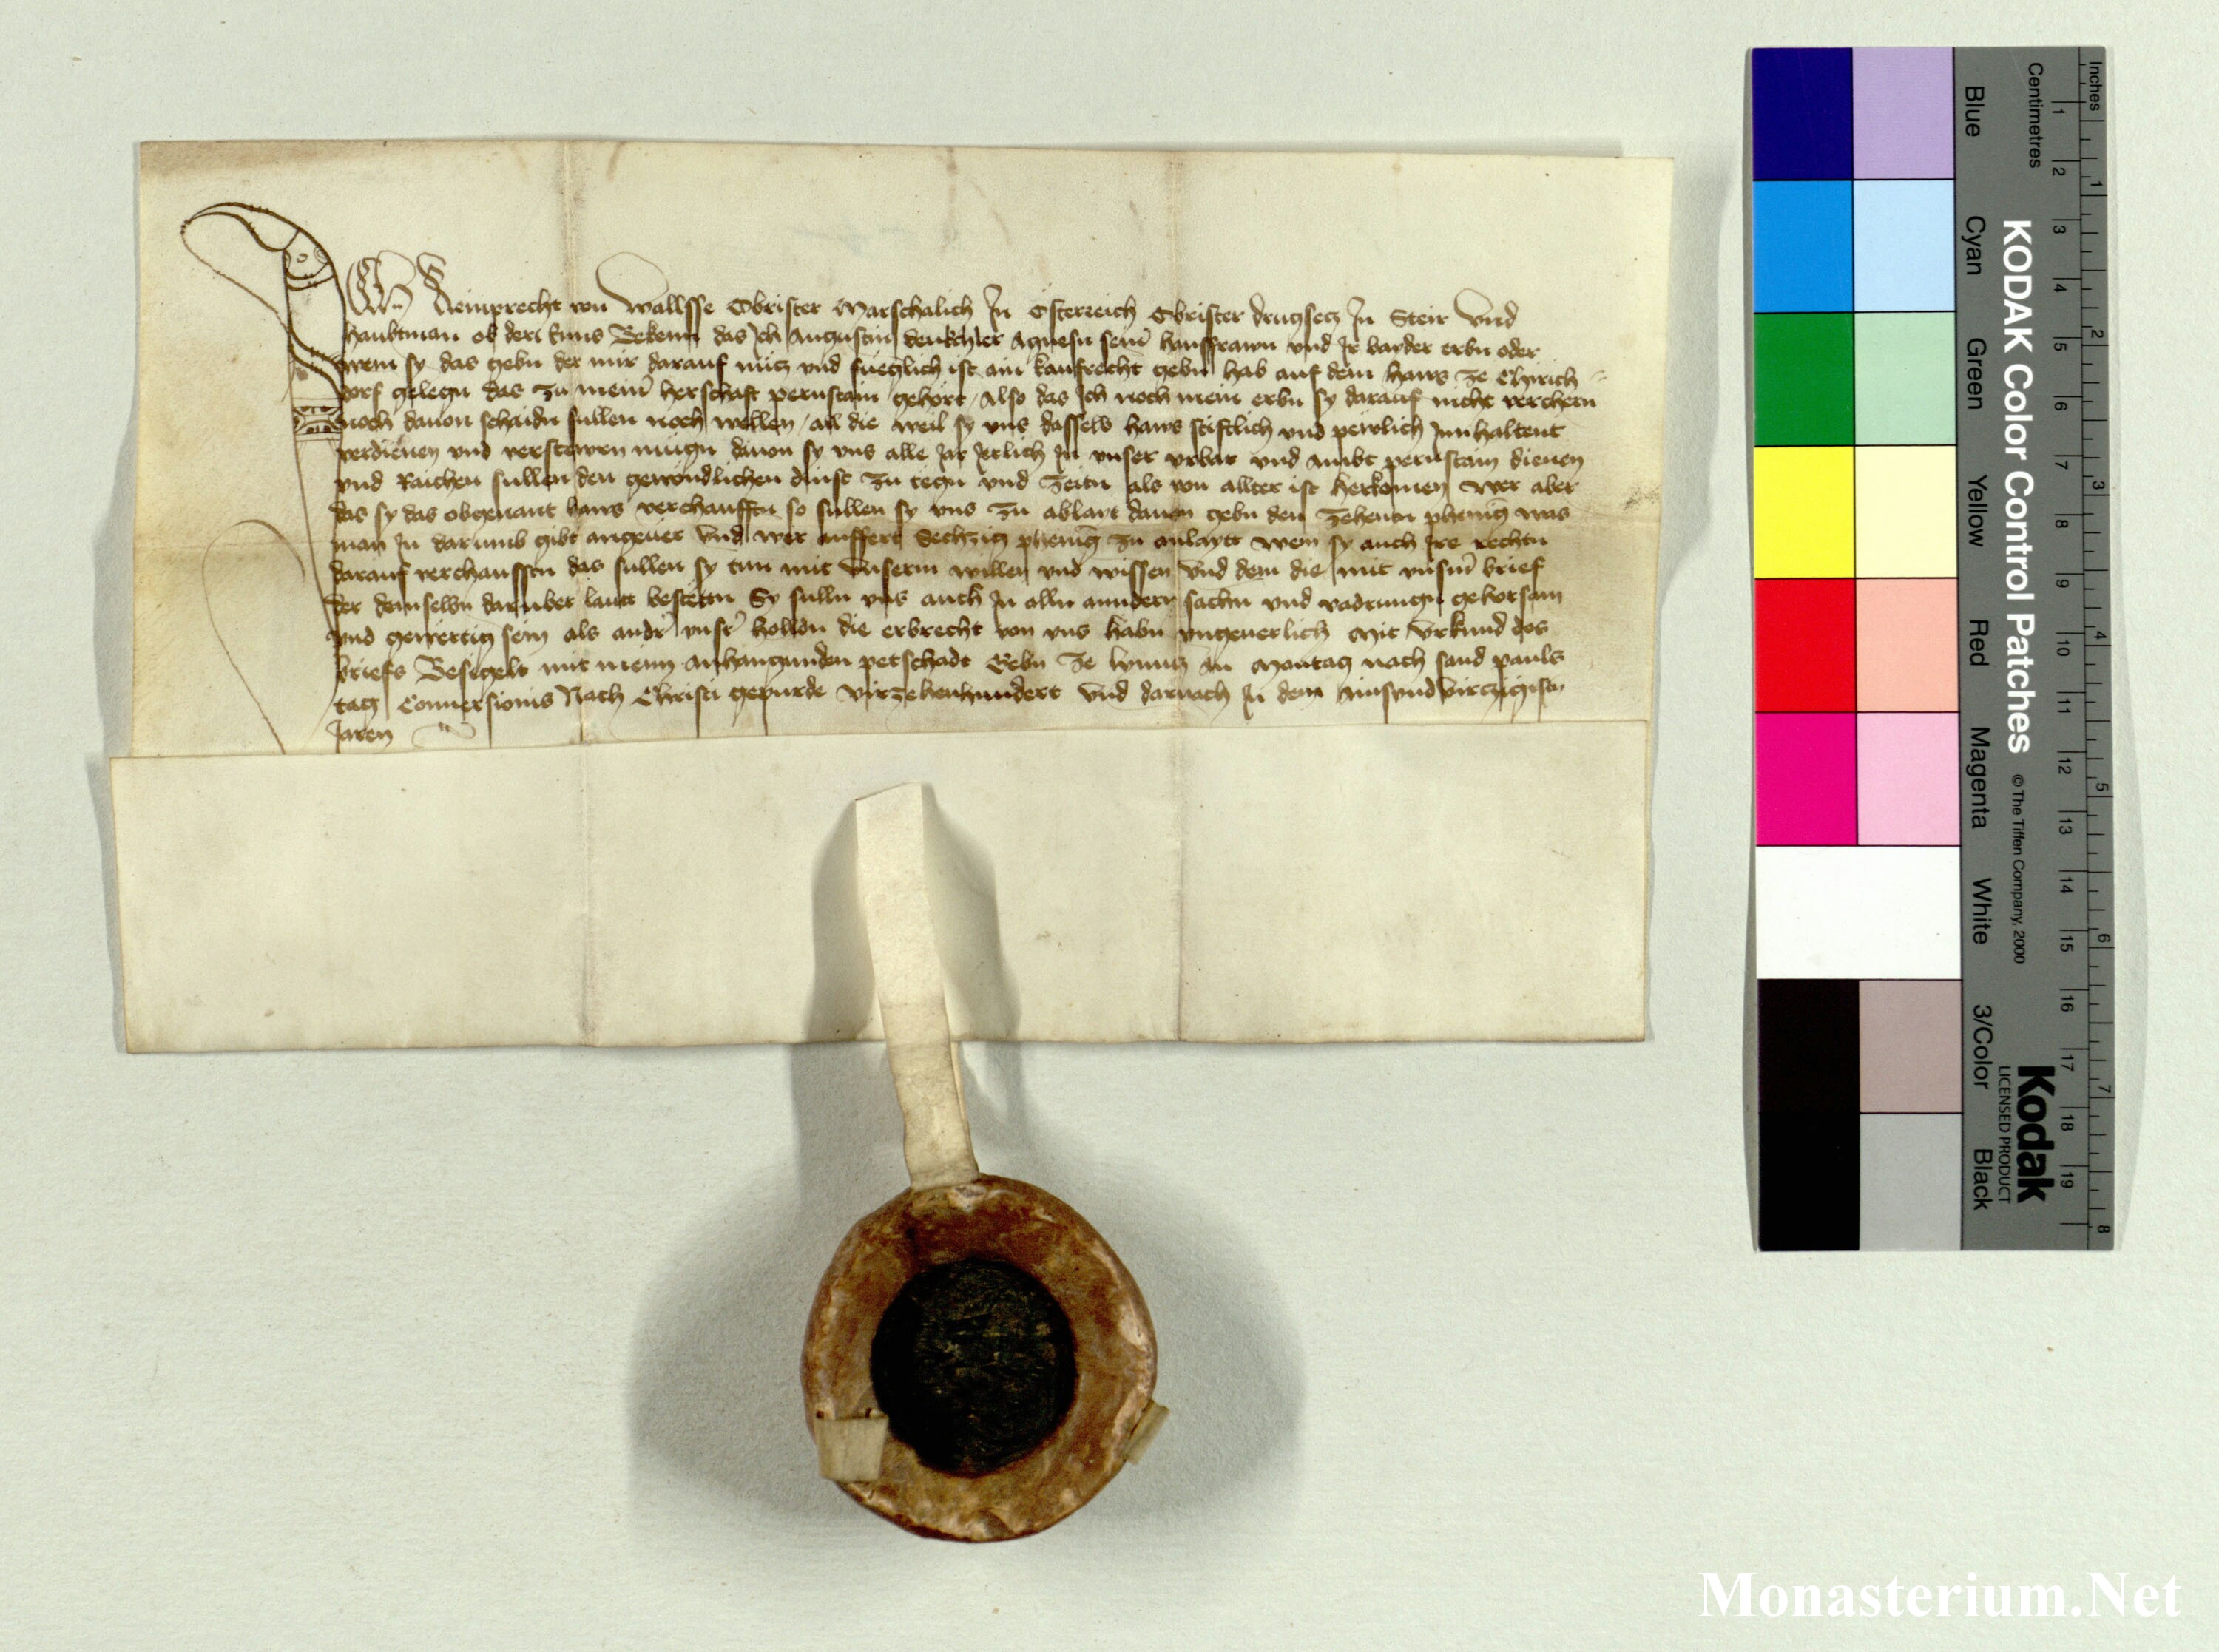 Ich Reimprecht von Wallsse Obrister Marschalich In Osterreich Obrister drugsecz In Steir Vnd
haubtman ob der Enns Bekenn das Ich Augustin Agnesn sein hausfrawn vnd Ir bayder erbn oder
wem sy das gebn der mir darauf nücz vnd fueglich ist ain kaufrecht gebn hab auf dem haws ze Chirich
dorf gelegn das zu meinr herschaft pernstain gehört Also das Ich noch mein erbn sy darauf nicht verchern
noch dauon schaidn sullen noch wellen all die weil sy vns dasselb haws stiftlich vnd pewlich Innhaltent
verdienen vnd verstewrn mügn dauon sy vns alle Jar Jerlich In vnser vrbar vnd Ambt pernstain dienen
vnd Raichen sullen den gewöndlichen dinst zu tegn vnd zeitn als von allter ist herkomen Wer aber
das sy das obgenant haws verchaufftn so sullen sy vns zu ablait dauon gebn den zehentn phening was
man In darumb gibt angeuer Vnd wer auffert Sechzig phening zu anlaytt Wem sy auch Ire rechtn
darauf verchaufftn das sullen sy tun mit Vnserm willen vnd wissen Vnd dem die mit vnserm brief
der demselbn darüber lautt bestettn Sy sulln vns auch In alln anndern sachn vnd vadrungn gehorsam
vnd gewertig sein als andr vnsr holldn die erbrecht von vns habn vngeuerlich Mit Vrkund des
briefs Besigelt mit meinn anhangunden petschadt Gebn ze Lynncz An Montag nach sand pauls
tag Conuersionis Nach Christi gepurde virzehenhundert Vnd darnach In dem Ainsvndvirczigistn
Jaren
KODAK Color Control Patches
© The Tiffen Company, 2000
Kodak
LICENSED PRODUCT
Blue
Cyan
Green
Yellow
Red
Magenta
White
3/Color
Black
Centimetres
1 2 3 4 5 6 7 8 9 10 11 12 13 14 15 16 17 18 19
Inches
1 2 3 4 5 6 7 8
Monasterium.Net